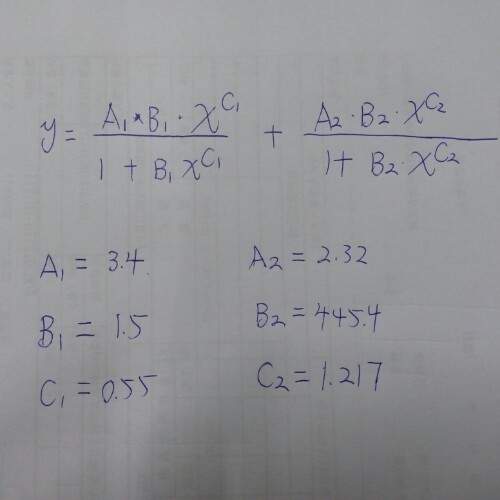 y = A₁*B₁·x^C₁ / 1 + B₁x^C₁ + A₂·B₂·x^C₂ / 1+ B₂·x^C₂
A₁ = 3.4 A₂ = 2.32
B₁ = 1.5 B₂ = 445.4
C₁ = 0.55 C₂ = 1.217